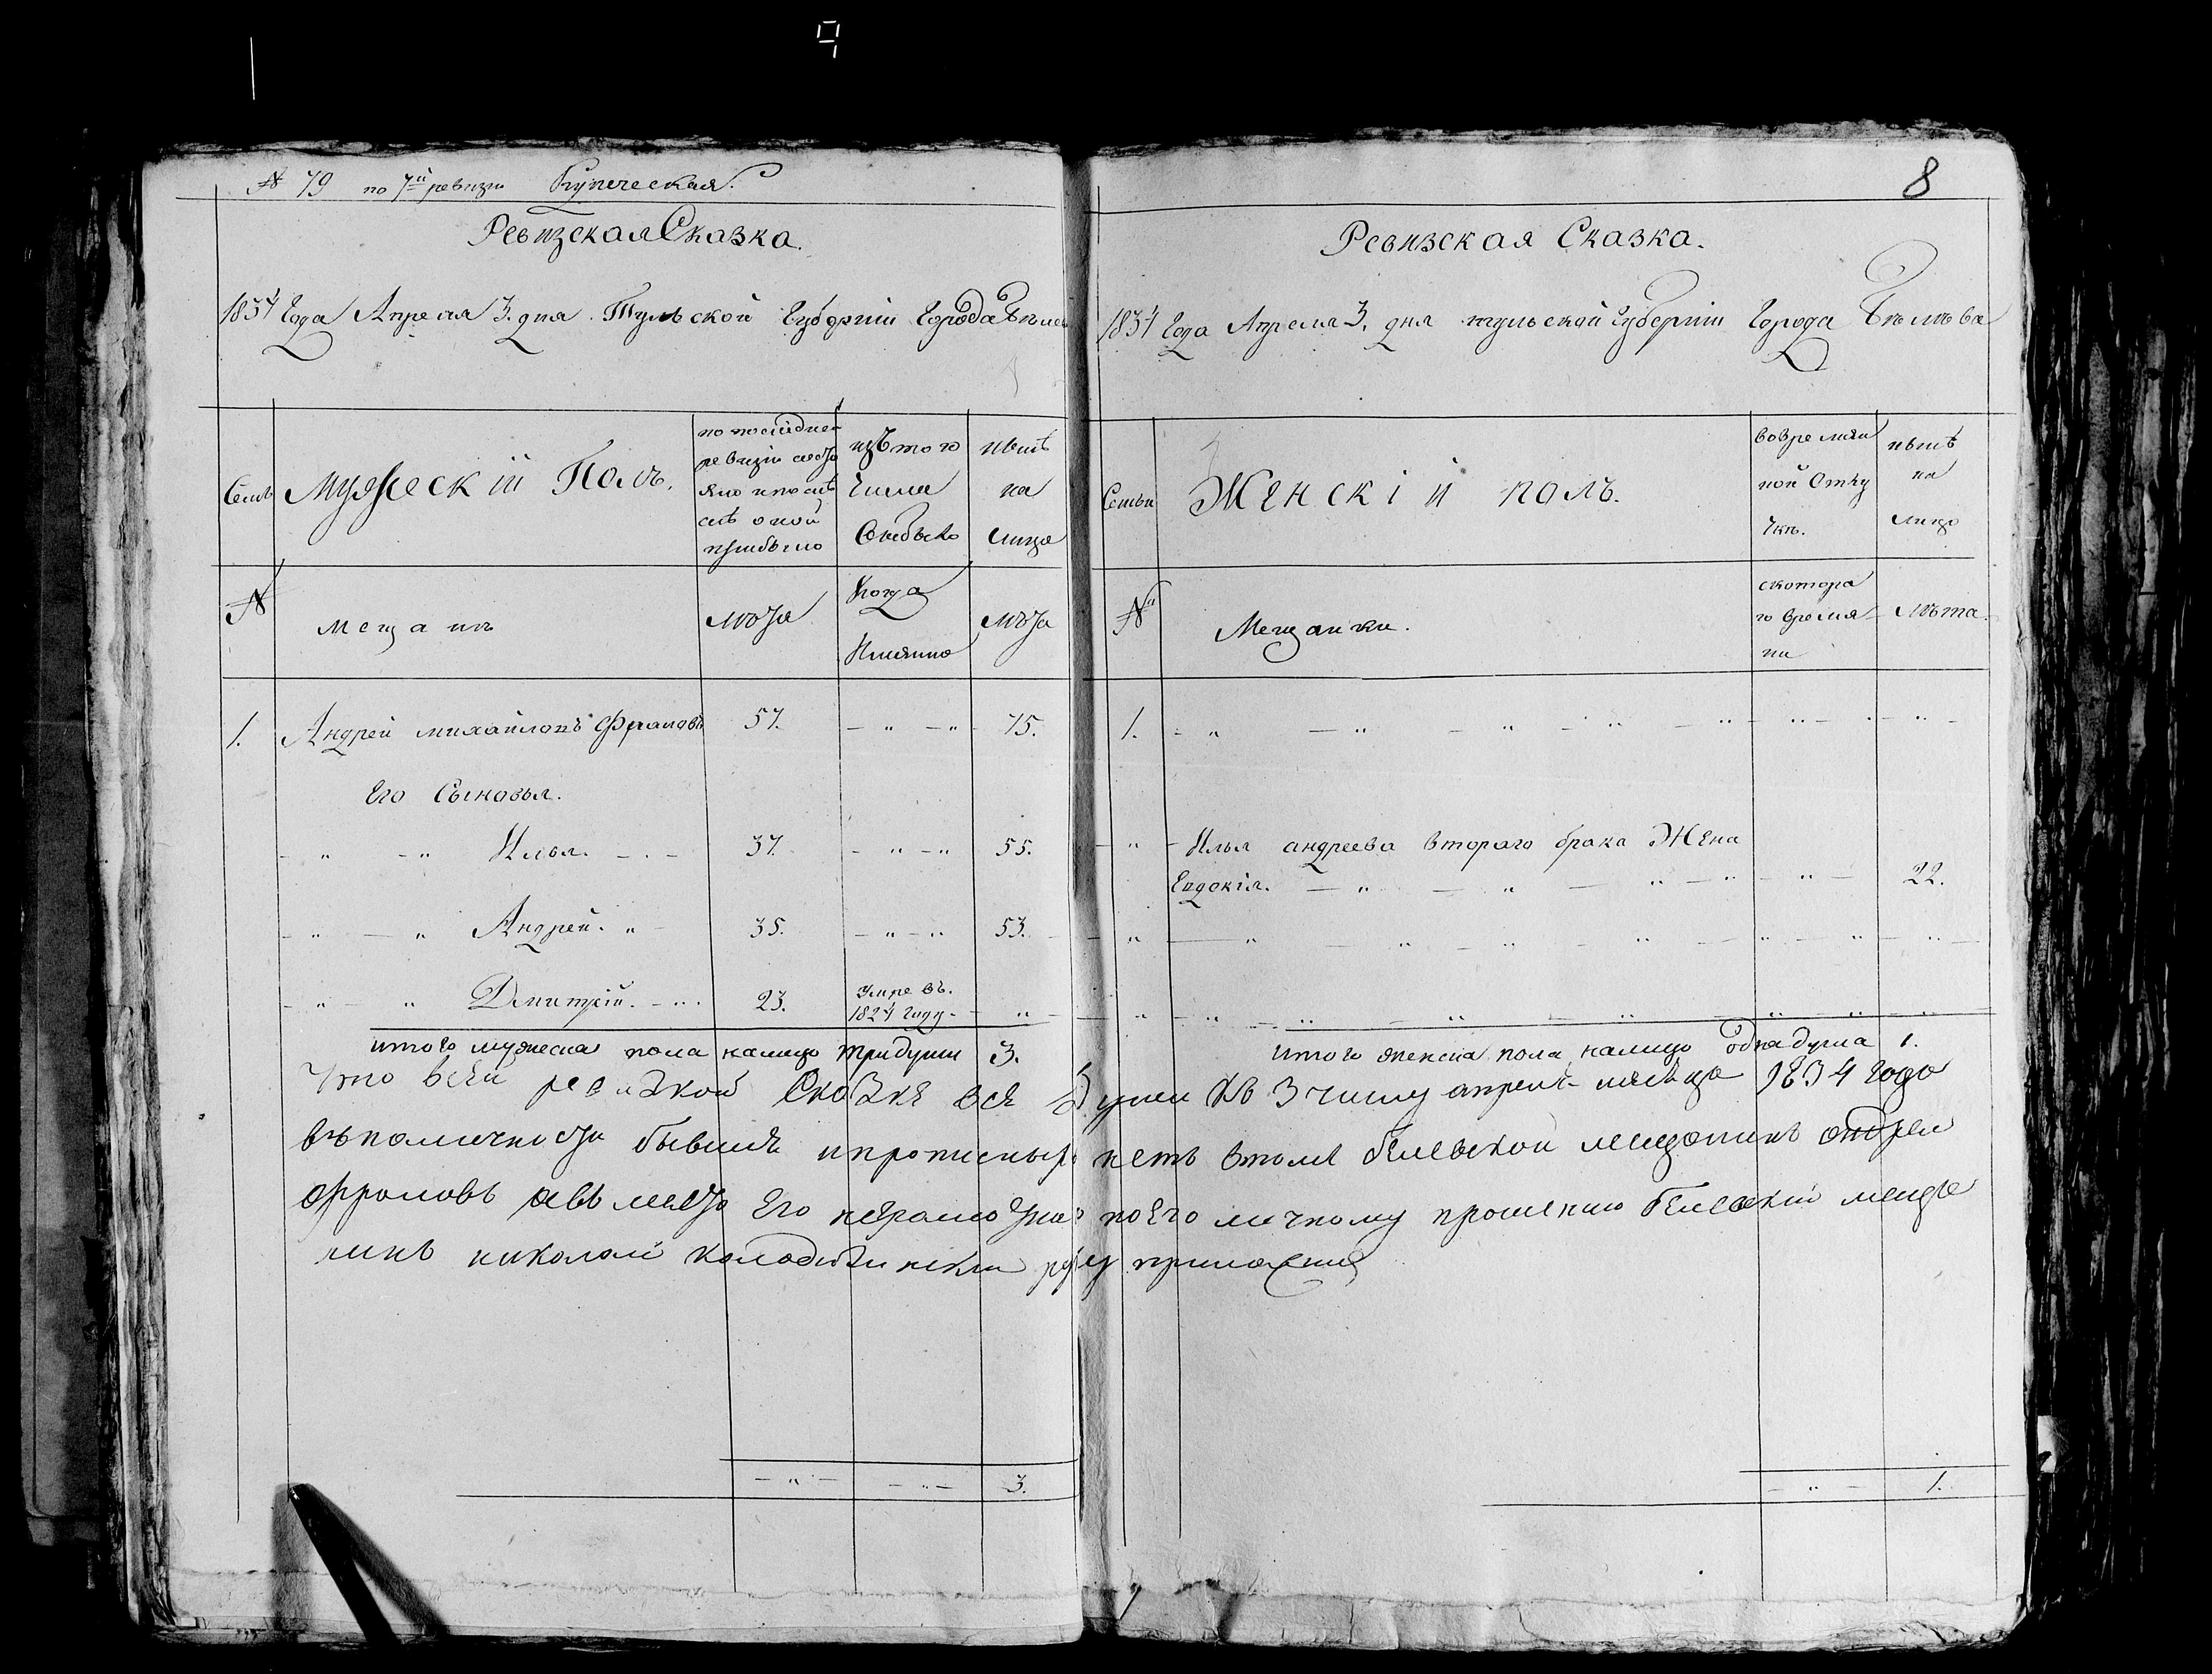 № 79 по 7й ревизіи Купеческая.
Ревизская Сказка.
1834 Года Апреля 3. дня. Тульской Губерніи Города Бѣлев
Семьи
Мужеский Полъ.
по последней
ревизіи состо
яло и после
оной
прибыло
изъ того
Числа
Выбыло
ныне
на
лицо
№
мещане
лѣта
Когда
Имянно
лѣта
1. Андрей михайловъ Фроловъ 57. — " — " 75.
Его Сыновья.
" — " Илья. — . — 37. — " — " 55.
" — " Андрей. " 35. — " — " 53.
" — " Дмитрій. — " . 23. умре въ. 1824 году — "
итого мужеска пола налицо три души 3.
— " — — " — 3.
8
Ревизская Сказка.
1834 Года Апреля 3. дня тульской Губерніи Города Бѣлѣва
Семьи
Женскій полъ.
вовремян
ной Отлу
чке.
ныне
на
лицо
№
Мещанки.
скотора
го время
ни
лѣта.
1. — " — " — " — " — " — " — "
" — Илья андреева втораго брака Жена
Евдокія. — " — " — " — " — " — 22.
" — " — " — " — " — " — " — "
" — " — " — " — " — " — " — "
итого женска пола налицо одна душа 1.
Что всей ревизкой Сказке все Души Къ 3 числу апреля месяца 1834 года
въ наличности бывшия и прописных нетъ в томъ белевской мещанинъ андрей
фроловъ а вместо Его неграмотна по Его личному прошению белевский меща
нинъ николай руку приложил
— " — 1.